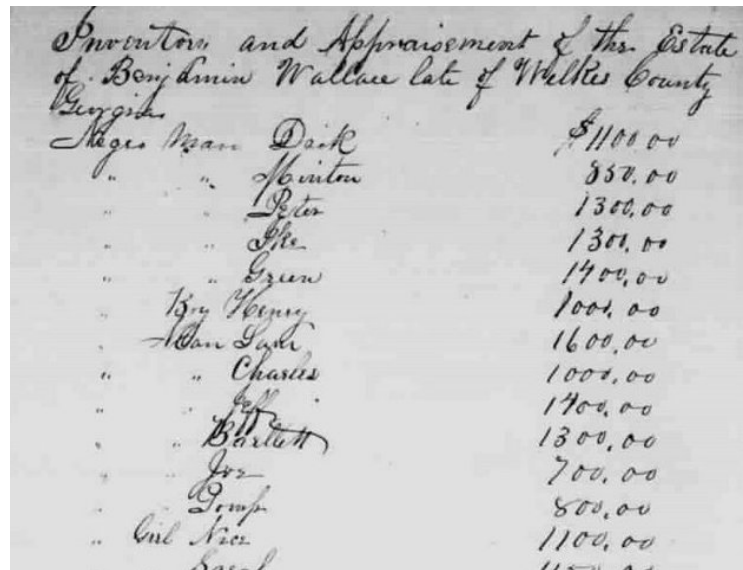 Inventory and Appraisement of the Estate
of Benjamin Wallace late of Wilkes County
Georgia
Negro Man Dick $1100.00
" " Minton 850.00
" " Peter 1300.00
" " Ike 1300.00
" " Green 1400.00
" Boy Henry 1000.00
" Man Sam 1600.00
" " Charles 1000.00
" " Jeff 1400.00
" " Bartlett 1300.00
" " Joe 700.00
" " Pomp 800.00
" Girl Nice 1100.00
Sarah